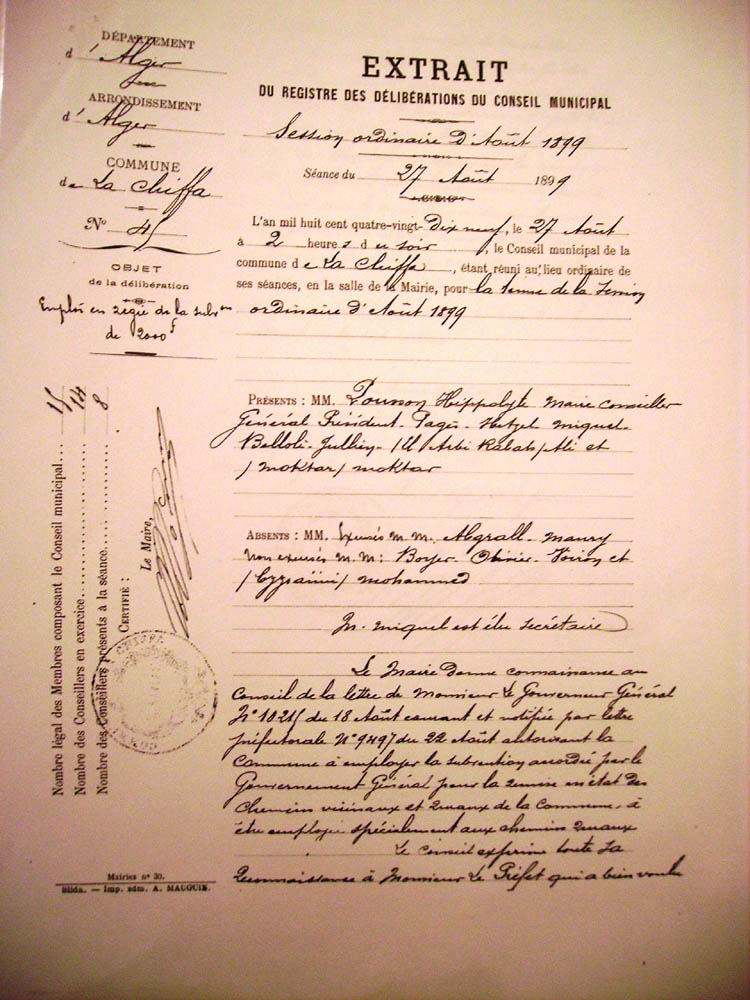 DÉPARTEMENT
d'Alger
ARRONDISSEMENT
d'Alger
COMMUNE
de La Chiffa
N° 45
OBJET
de la délibération
Emploi en régie de la subon
de 2000f
EXTRAIT
DU REGISTRE DES DÉLIBÉRATIONS DU CONSEIL MUNICIPAL
Session ordinaire d'Août 1899
Séance du 27 Août 1899
L'an mil huit cent quatre-vingt-Dix neuf, le 27 Août
à 2 heures du soir, le Conseil municipal de la
commune de La Chiffa, étant réuni au lieu ordinaire de
ses séances, en la salle de la Mairie, pour la tenue de la Session
ordinaire d'Août 1899
PRÉSENTS : MM. Hippolyte Maire Conseiller
Général Président - Pagès - Hetzel Miguel -
Belloli - Jullien - /El Arbi Rabat/ Ali et
/Moktar/ Moktar
ABSENTS : MM. Excusés M.M. Abgrall - Maury
Non excusés M.M: Boyer - Olivier - Voiron et
Mohammed
M. Miguel est élu secrétaire
Le Maire donne connaissance au
Conseil de la lettre de Monsieur Le Gouverneur Général
N° 10215 du 18 Août courant et notifiée par lettre
préfectorale N° 9497 du 22 Août autorisant la
Commune à employer la subvention accordée par le
Gouvernement Général pour la remise en état des
Chemins vicinaux et ruraux de la Commune, à
être employée spécialement aux chemins ruraux
Le Conseil exprime toute sa
Reconnaissance à Monsieur Le Préfet qui a bien voulu
Nombre légal des Membres composant le Conseil municipal.... 15
Nombre des Conseillers en exercice.............. 14
Nombre des Conseillers présents à la séance........ 8
CERTIFIÉ :
Le Maire,
Mairies n° 30.
Blida. — Imp. adm. A. MAUGUIN.